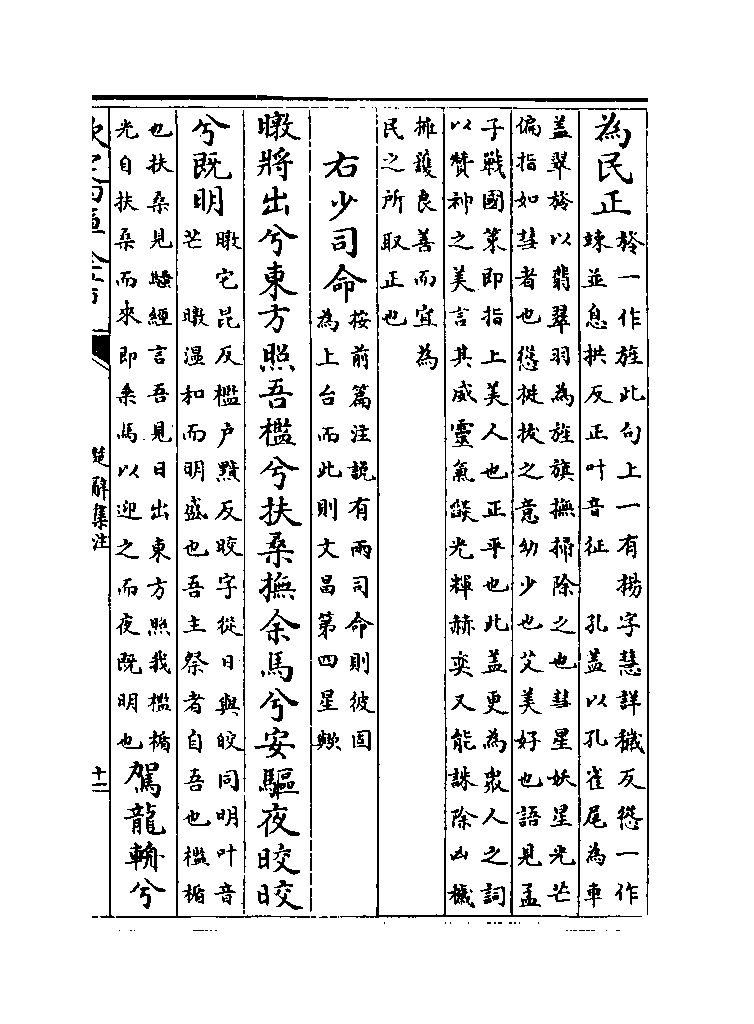 為民正旍一作旌此句上一有楊字慧詳穢反慫一作
竦並息拱反正叶音征　孔蓋以孔雀尾為車
蓋翠旍以翡翠羽為旌旗撫掃除之也彗星妖星光芒
偏指如彗者也慫挻拔之意幼少也艾美好也語見孟
子戰國策即指上美人也正平也此蓋更為衆人之詞
以賛神之美言其威靈氣燄光輝赫奕又能誅除凶穢
擁護良善而宜為
民之所取正也
右少司命按前篇注說有兩司命則彼固
為上台而此則文昌第四星歟
暾將出兮東方照吾檻兮扶桑撫余馬兮安驅夜皎皎
兮既明暾它昆反檻户黤反晈字從日與皎同明叶音
芒　暾温和而明盛也吾主祭者自吾也檻楯
也扶桑見騷經言吾見日出東方照我檻楯
光自扶桑而來即乘馬以迎之而夜既明也駕龍輈兮
楚辭集注
十二